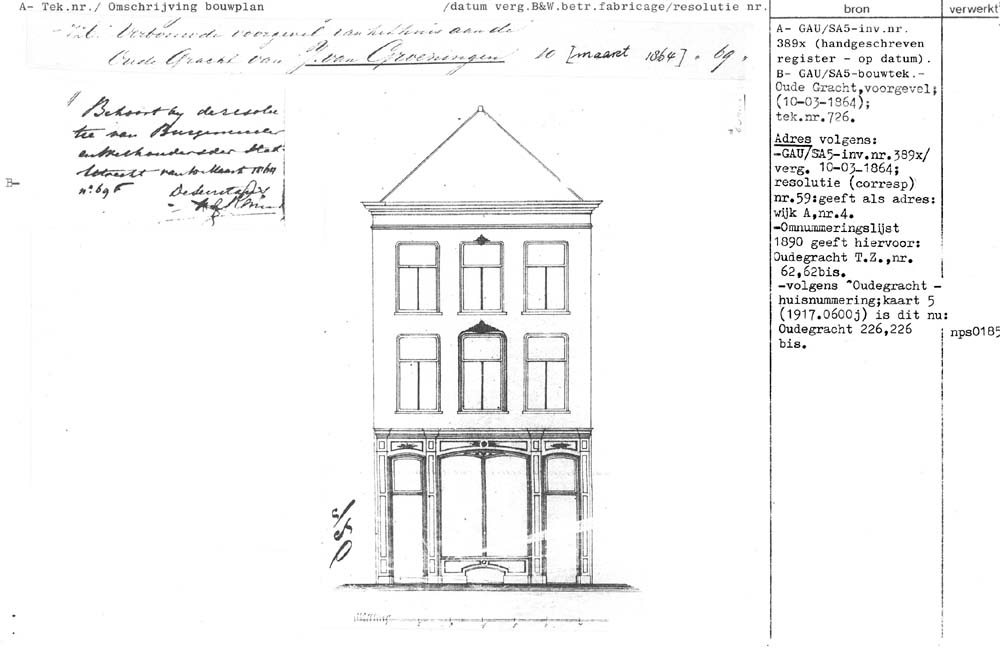 A- Tek.nr./ Omschrijving bouwplan /datum verg.B&W.betr.fabricage/resolutie nr. bron verwerkt
Verbouwde voorgevel van het huis aan de
Oude Gracht van van Groeningen 10 [maart 1864] 69
Behoort bij de resolu
tie van Burgemeester
en Wethouders der Stad
Utrecht van 10 Maart 1864
n° 69
De Secretaris
B-
A- GAU/SA5-inv.nr.
389x (handgeschreven
register - op datum).
B- GAU/SA5-bouwtek.-
Oude Gracht,voorgevel;
(10-03-1864);
tek.nr.726.
Adres volgens:
-GAU/SA5-inv.nr.389x/
verg. 10-03-1864;
resolutie (corresp)
nr.59:geeft als adres:
wijk A,nr.4.
-Omnummeringslijst
1890 geeft hiervoor:
Oudegracht T.Z.,nr.
62,62bis.
-volgens "Oudegracht -
huisnummering;kaart 5
(1917.0600j) is dit nu:
Oudegracht 226,226
bis.
nps0185